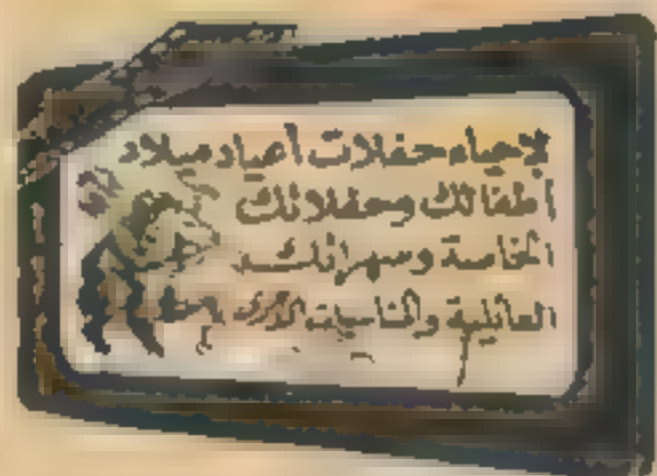 لإحياء حفلات أعياد ميلاد
أطفالك وحفلاتك
الخاصة وسهراتك
العائلية والمناسبات